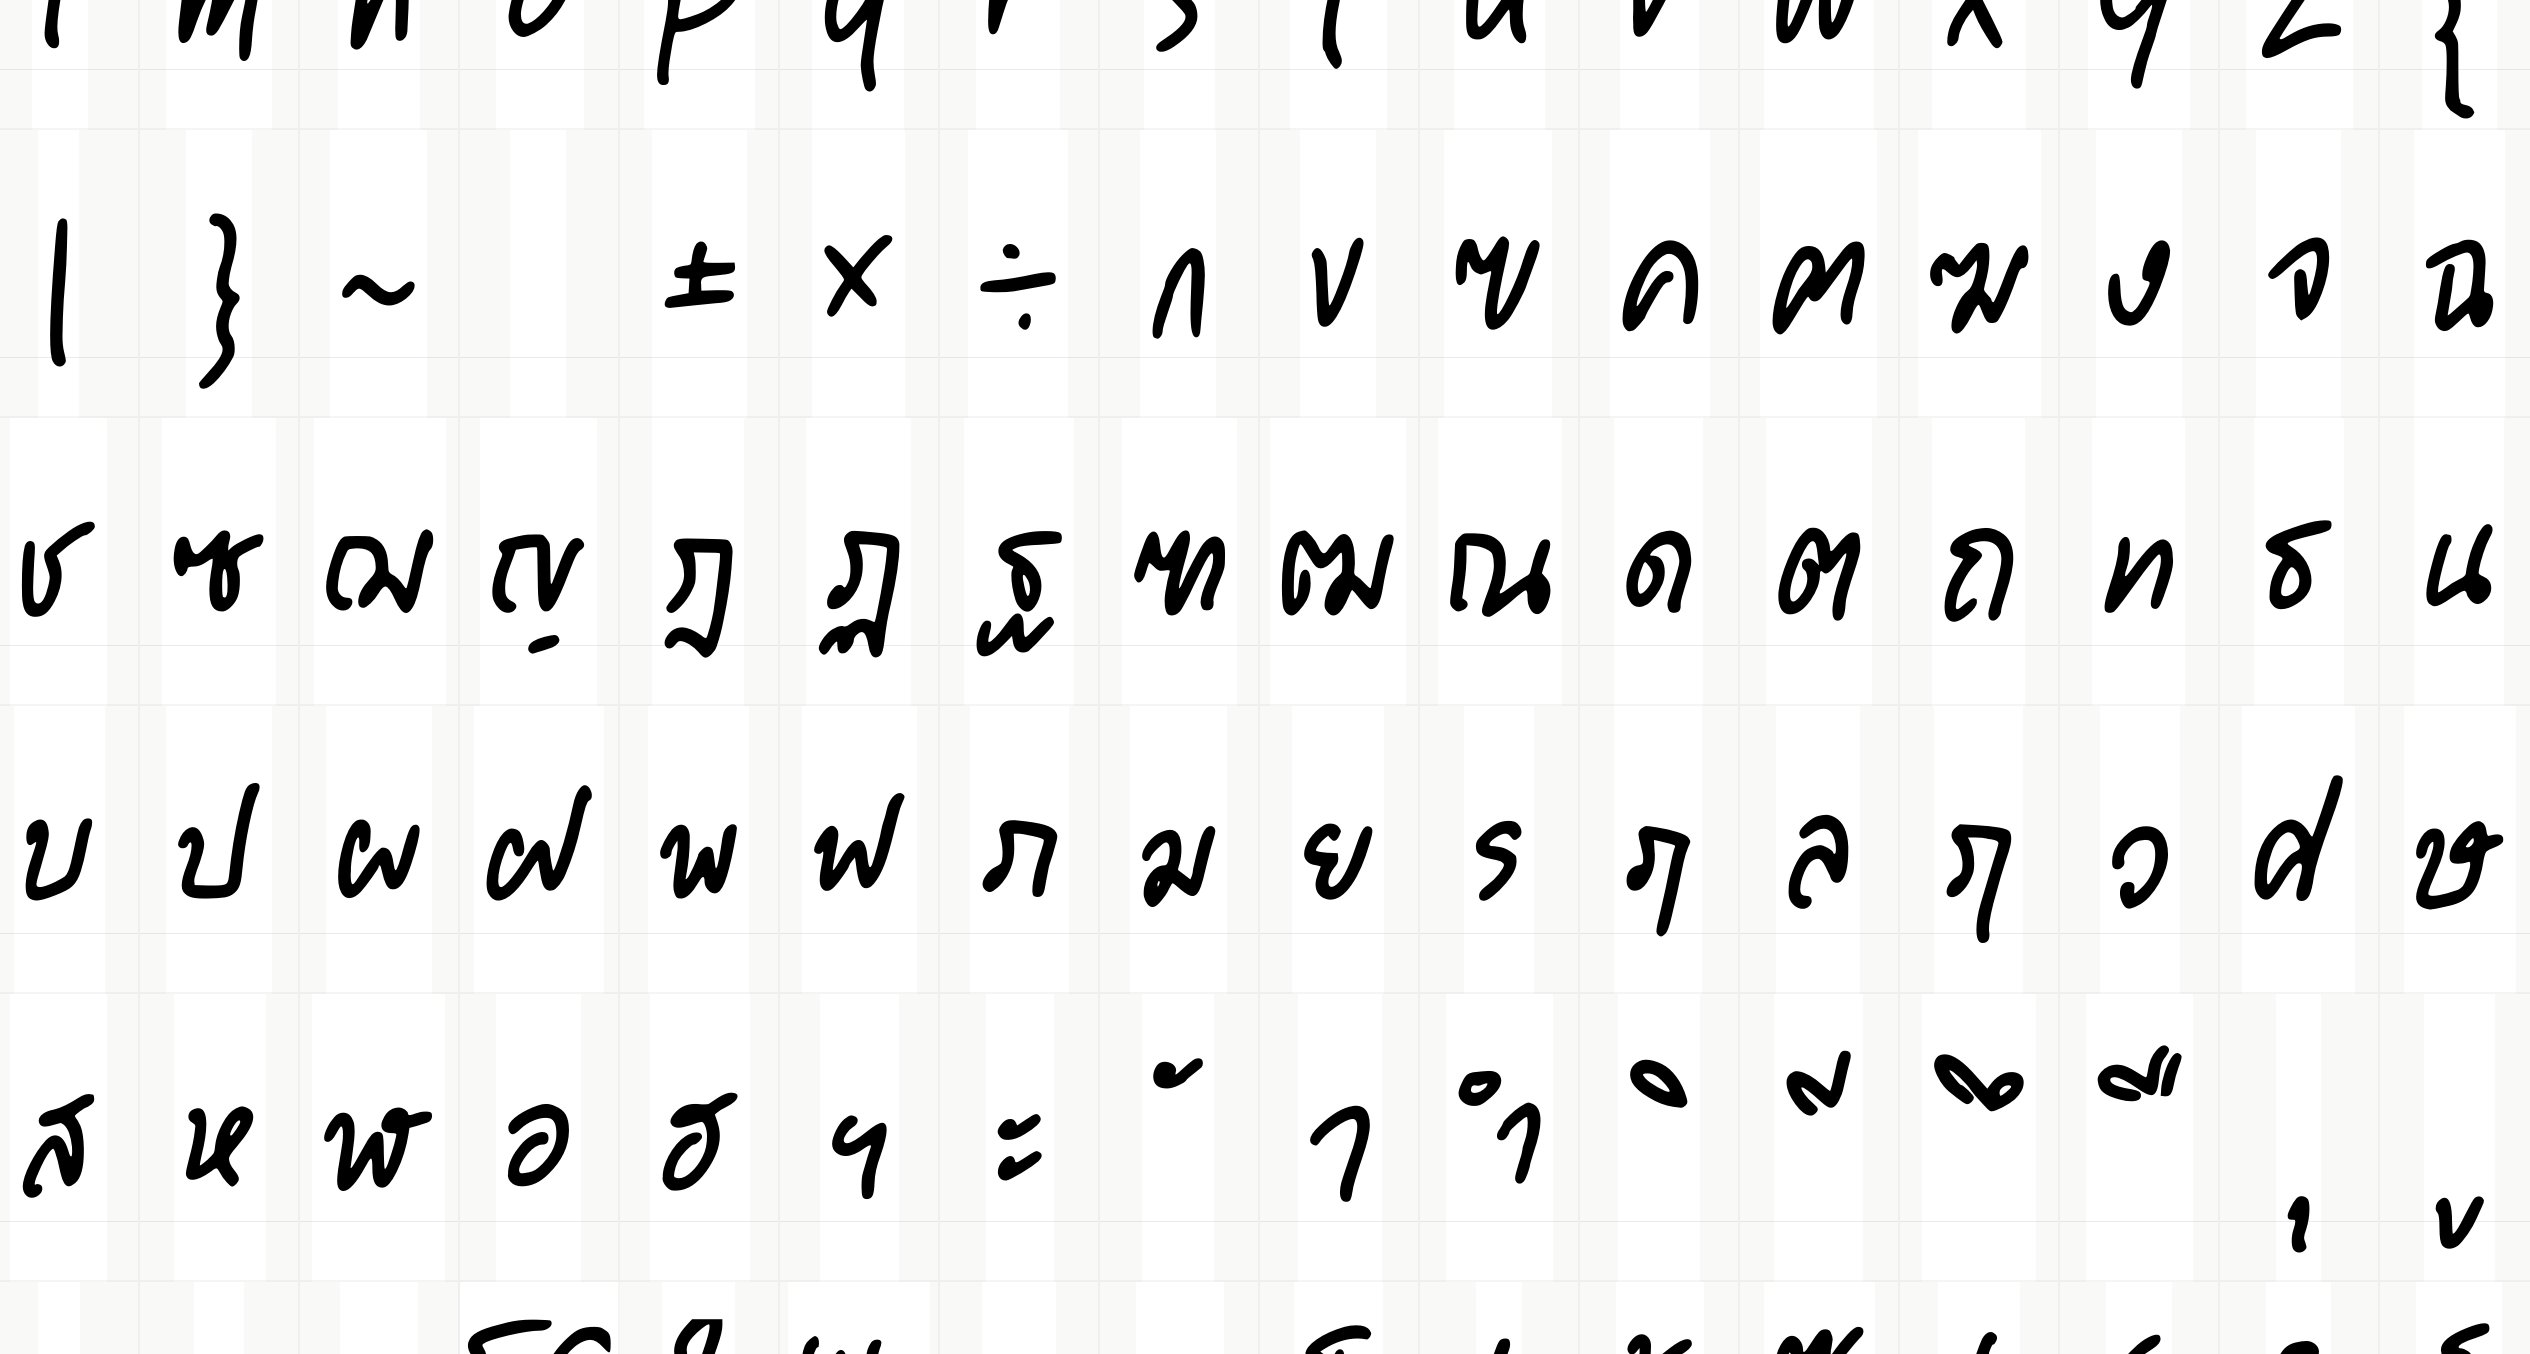 l m n o p q r s t u v w x y z {
| } ~ ± × ÷ ก ข ฃ ค ฅ ฆ ง จ ฉ
ช ซ ฌ ญ ฎ ฏ ฐ ฑ ฒ ณ ด ต ถ ท ธ น
บ ป ผ ฝ พ ฟ ภ ม ย ร ฤ ล ฦ ว ศ ษ
ส ห ฬ อ ฮ ฯ ะ ั า ำ ิ ี ึ ื ุ ู